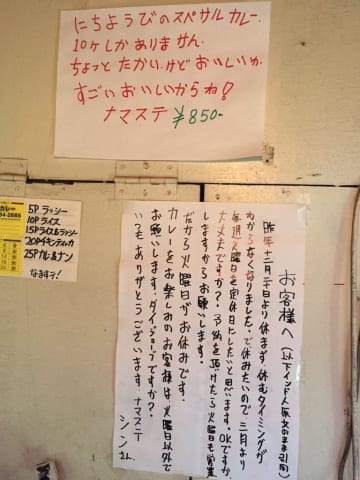 にちようびのスペサルカレー.
10ケしかありません.
ちょっとたかい.けどおいしいか.
すごいおいしいからね!
ナマステ ¥850-
カレー
54-2685
5Pラッシー
10Pライス
15Pライス&ラッシー
20Pチキンティッカ
25Pカレー&ナン
なます元!
お客様へ(以下インド人原文のまま引用)
昨年十二月二十日より休まず休むタイミングが
わからなくなりました。で休みたいので三月より
毎週火曜日を定休日にしたいと思います。OKですか
大丈夫ですか?予約を頂けたら火曜日も営業
しますからお願いします。
だから火曜日がお休みです.
カレーをお楽しみのお客様は火曜日以外で
お願いします。ダイジョーブですか?
いつもありがとうございます。ナマステ
シンさん.